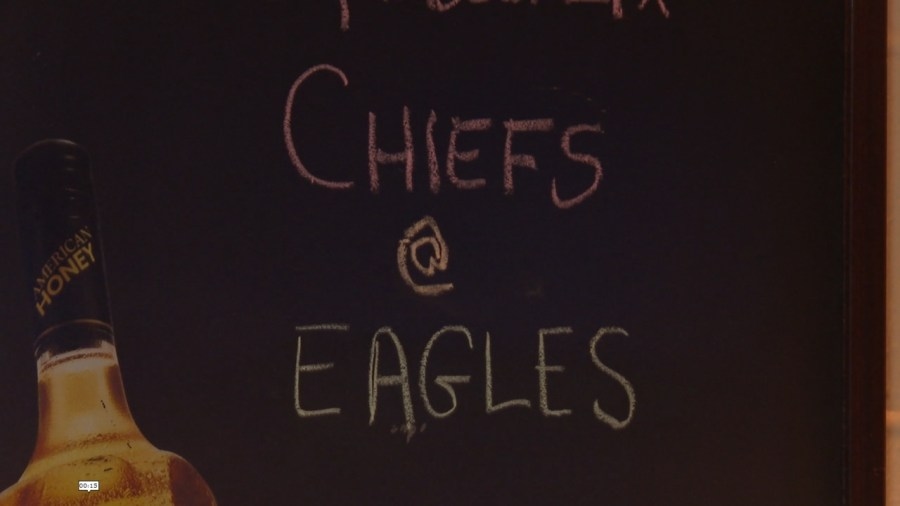 CHIEFS
@
EAGLES
AMERICAN
HONEY
00:15